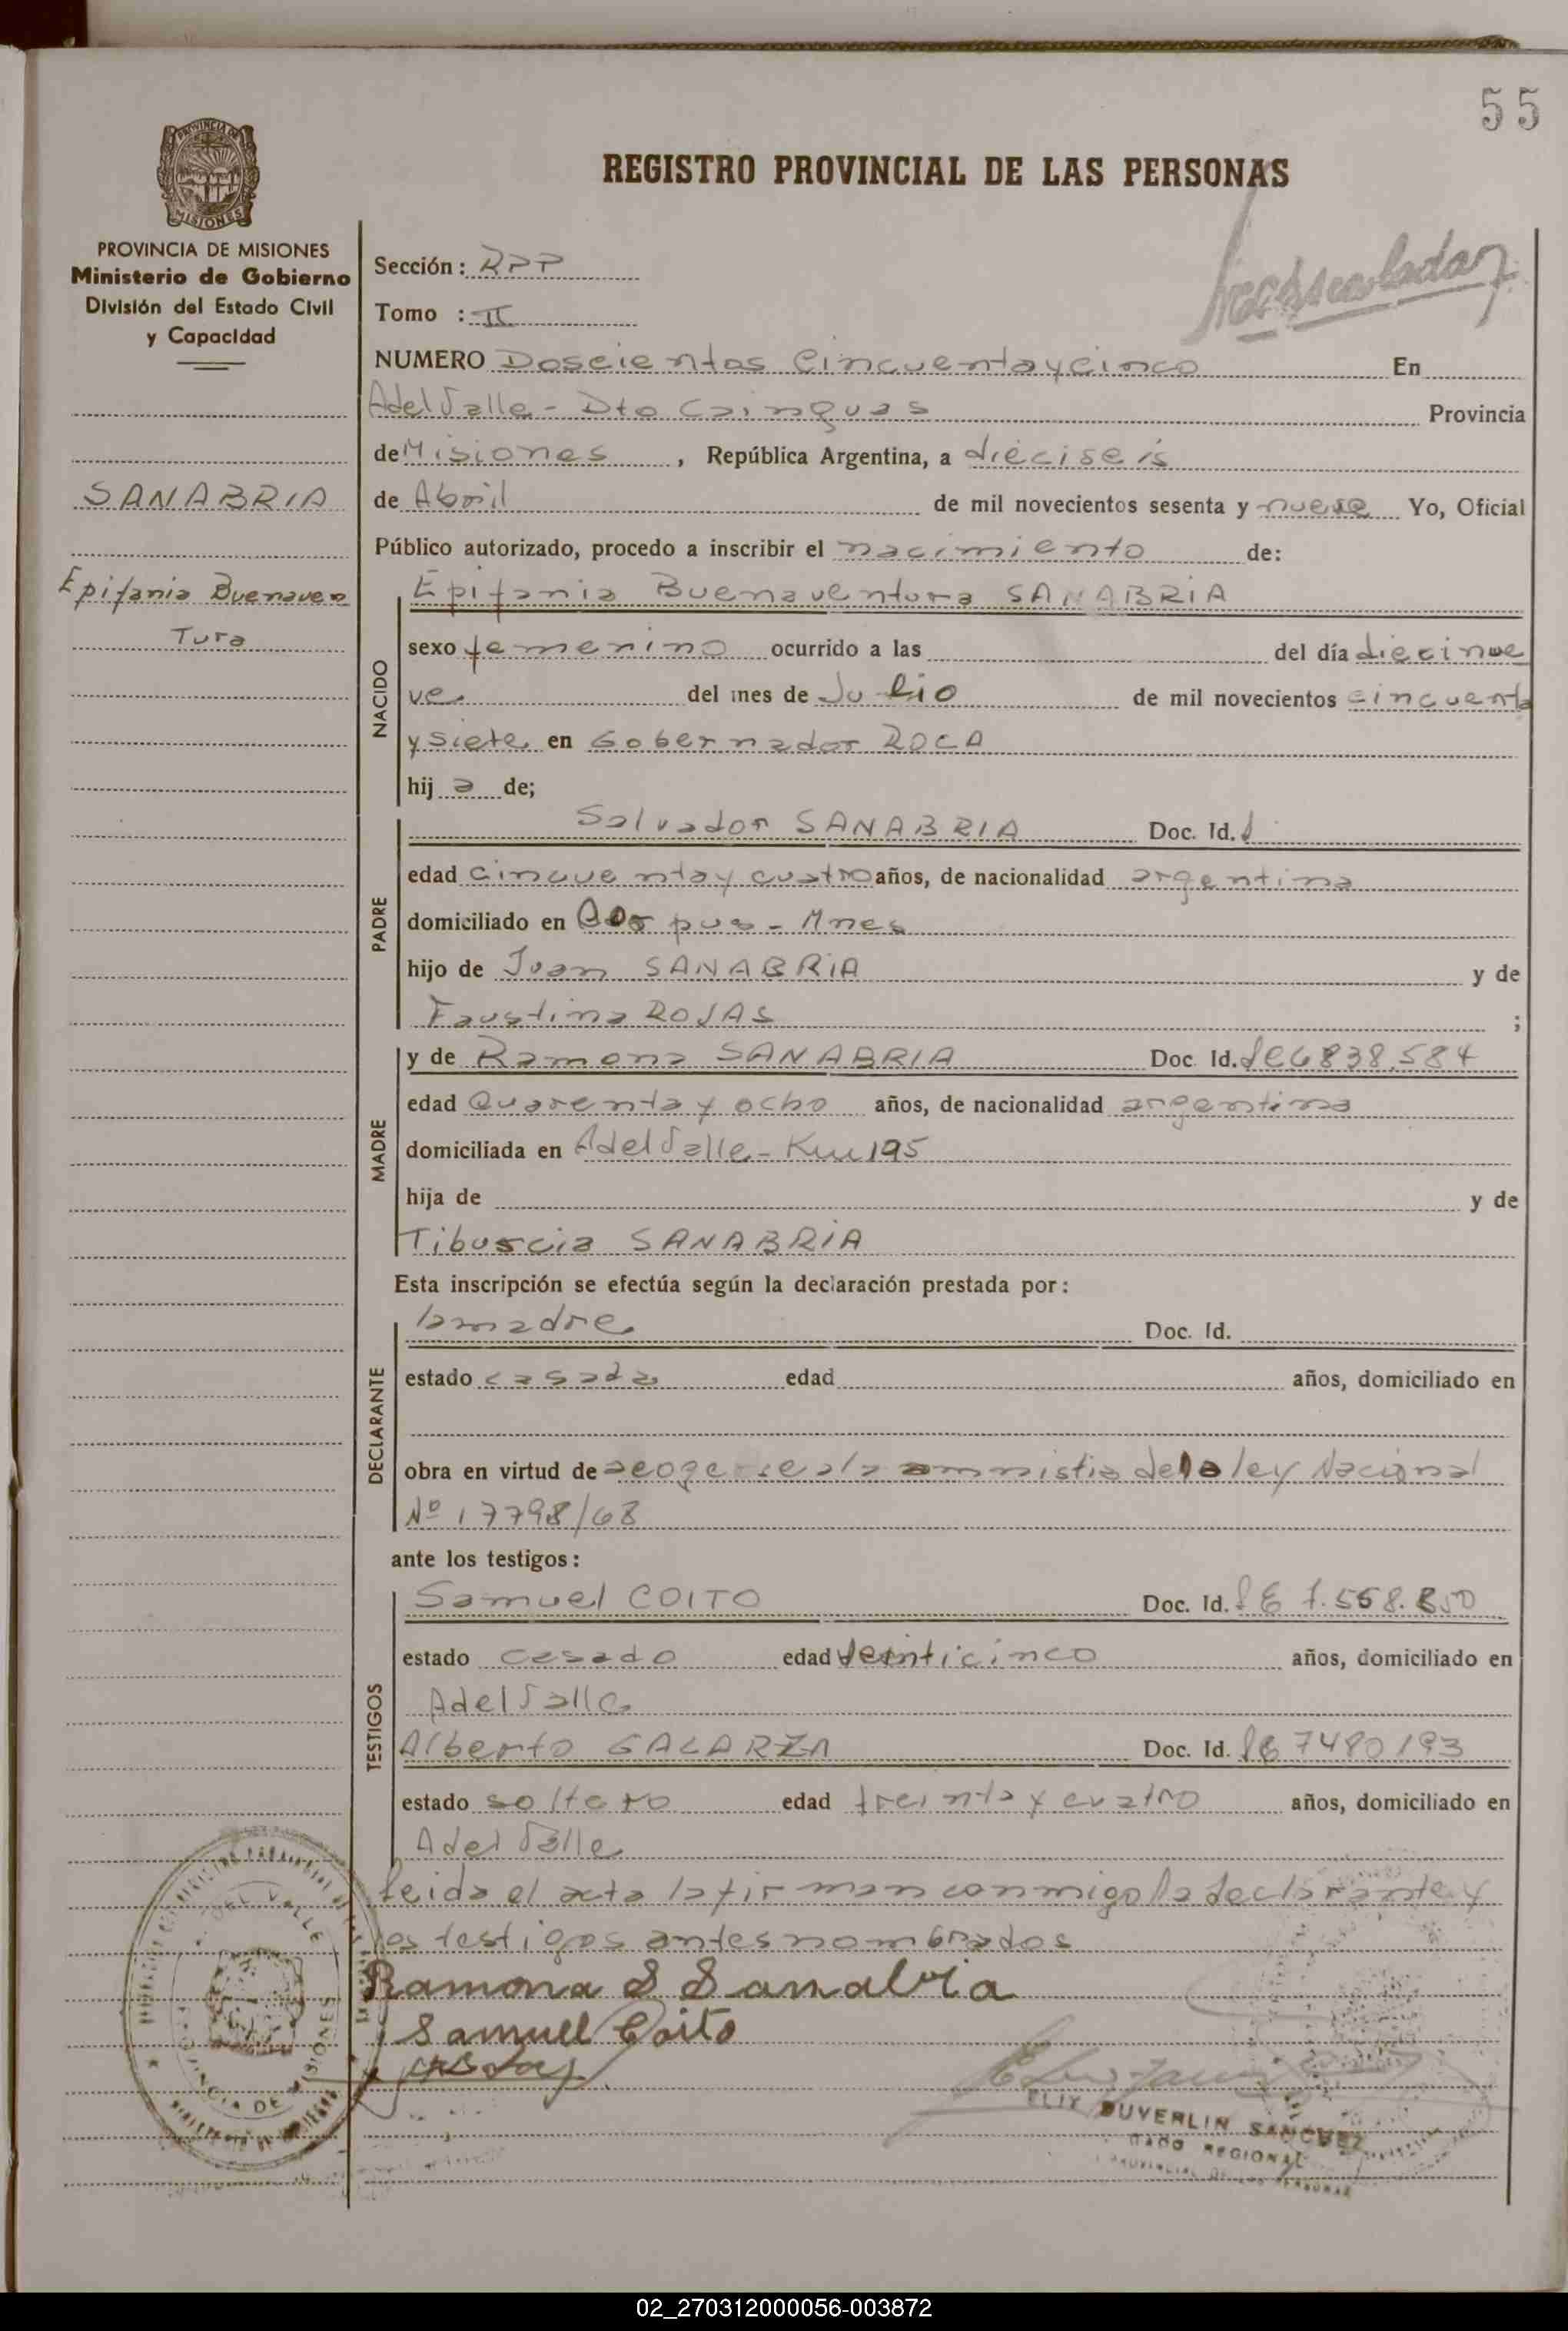 55
REGISTRO PROVINCIAL DE LAS PERSONAS
PROVINCIA DE MISIONES
PROVINCIA DE MISIONES
Ministerio de Gobierno
División del Estado Civil
y Capacidad
SANABRIA
Epifania Buenaven
Tura
Sección: RPP
Tomo : II
NUMERO Doscientos Cincuentaycinco En
Adel Valle - Dto Cainguas Provincia
de Misiones , República Argentina, a dieciseis
de Abril de mil novecientos sesenta y nueve Yo, Oficial
Público autorizado, procedo a inscribir el nacimiento de:
NACIDO
Epifania Buenaventura SANABRIA
sexo femenino ocurrido a las del día diecinue
ve del mes de Julio de mil novecientos cincuenta
y siete en Gobernador ROCA
hij a de;
PADRE
Salvador SANABRIA Doc. Id.
edad cincuentay cuatro años, de nacionalidad argentina
domiciliado en Corpus - Mnes
hijo de Juan SANABRIA y de
Faustina ROJAS ;
MADRE
y de Ramona SANABRIA Doc. Id. LC6838.584
edad Cuarenta y ocho años, de nacionalidad argentina
domiciliada en Adel Valle - Km 195
hija de y de
Tiburcia SANABRIA
Esta inscripción se efectúa según la declaración prestada por:
DECLARANTE
la madre Doc. Id.
estado casada edad años, domiciliado en
obra en virtud de acogerse a la amnistia de la ley Nacional
Nº 17798/68
ante los testigos:
TESTIGOS
Samuel COITO Doc. Id. LE
estado casado edad veinticinco años, domiciliado en
Adel Valle
Alberto GALARZA Doc. Id. LE 7480193
estado soltero edad treinta y cuatro años, domiciliado en
Adel Valle
leida el acta la firman conmigo la declarante y
los testigos antes nombrados
Ramona S Sanabria
Samuel Coito
DUVERLIN SANCHEZ
REGIONAL
DEL VALLE
02_270312000056-003872